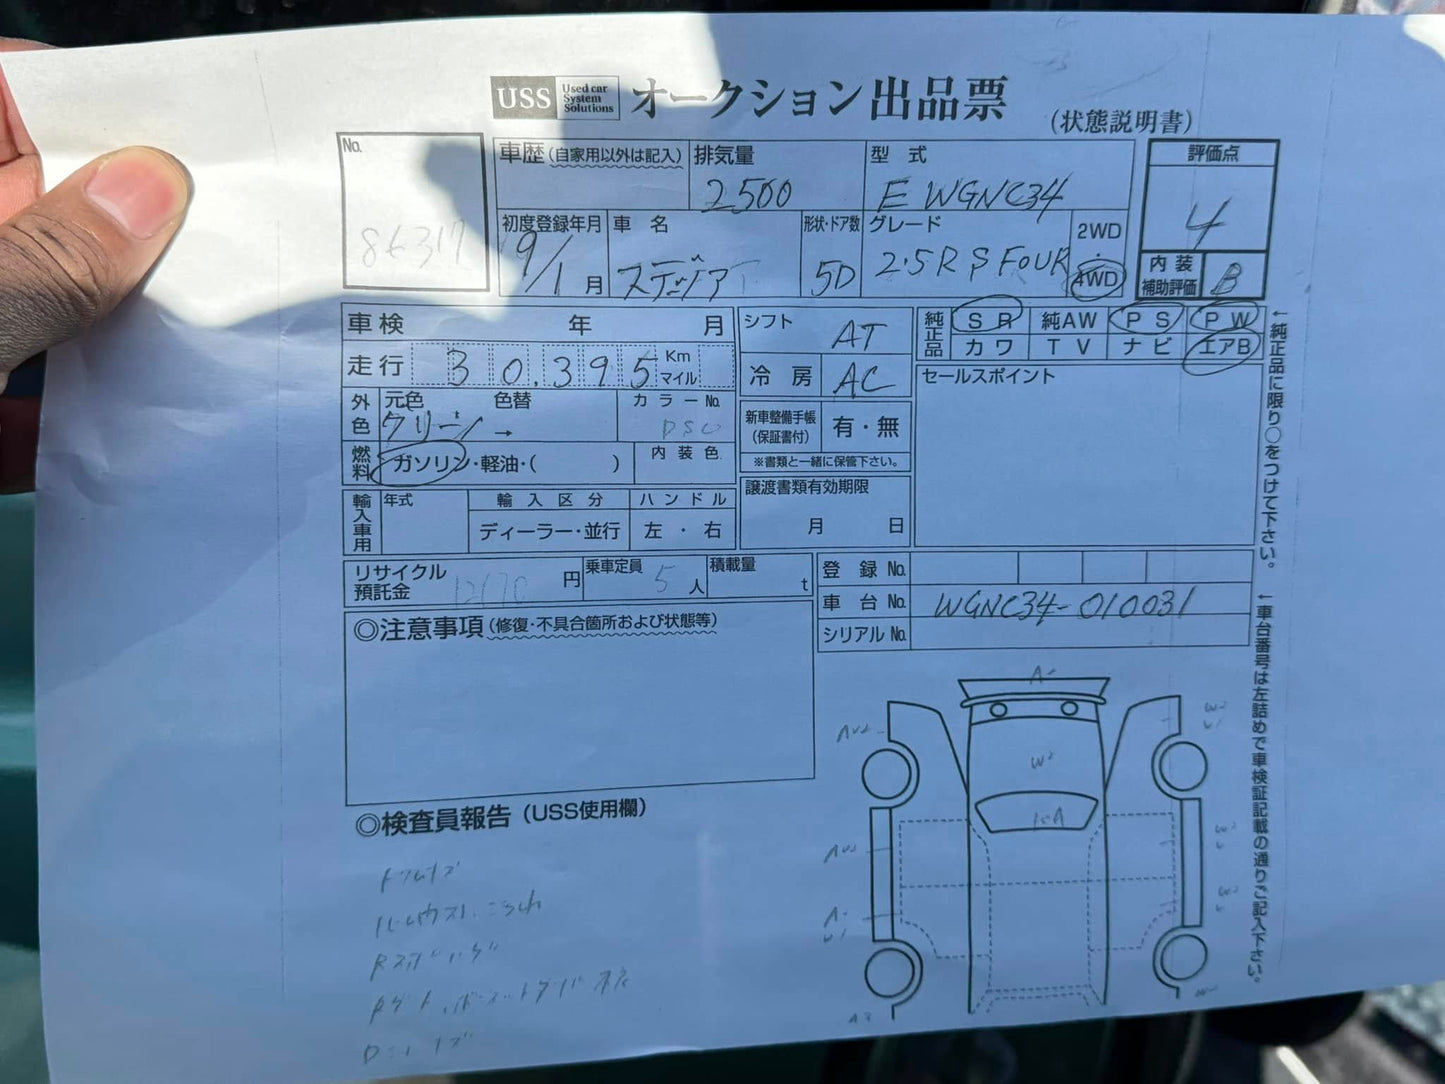 USS Used car System Solutions オークション出品票 (状態説明書)
No. 86317
車歴 (自家用以外は記入)
排気量 2500
型式 E WGNC34
評価点 4
初度登録年月 9/1月
車名 ステージア
形状・ドア数 5D
グレード 2.5RS FOUR
2WD・4WD
内装補助評価 B
車検 年 月
走行 30,395 Km マイル
シフト AT
冷房 AC
純正品 SR 純AW PS PW
カワ TV ナビ エアB
外色 元色 グリーン → 色替
カラーNo. DS0
燃料 ガソリン・軽油・( )
内装色
新車整備手帳(保証書付) 有・無
※書類と一緒に保管下さい。
セールスポイント
輸入車用 年式 輸入区分 ハンドル
ディーラー・並行 左・右
譲渡書類有効期限
月 日
リサイクル預託金 12170 円
乗車定員 5人
積載量 t
登録No.
車台No. WGNC34-010031
シリアルNo.
◎注意事項 (修復・不具合箇所および状態等)
◎検査員報告 (USS使用欄)
←純正品に限り○をつけて下さい。
←車台番号は左詰めで車検証記載の通りご記入下さい。
W2